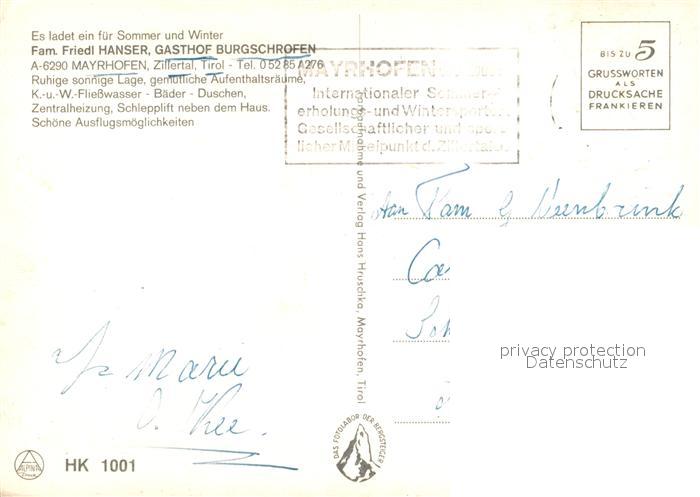 Es ladet ein für Sommer und Winter
Fam. Friedl HANSER, GASTHOF BURGSCHROFEN
A-6290 MAYRHOFEN, Zillertal, Tirol - Tel. 0 52 85 A276
Ruhige sonnige Lage, gemütliche Aufenthaltsräume,
K.-u.-W.-Fließwasser - Bäder - Duschen,
Zentralheizung, Schlepplift neben dem Haus.
Schöne Ausflugsmöglichkeiten
MAYRHOFEN
Internationaler Sommer-
erholungs- und Wintersport
Gesellschaftlicher und spor
licher Mittelpunkt d. Zillertales
BIS ZU 5
GRUSSWORTEN
ALS
DRUCKSACHE
FRANKIEREN
und Verlag Hans Hruschka, Mayrhofen, Tirol
Fam
privacy protection
Datenschutz
Marie
DAS FOTOLABOR DER BERGSTEIGER
ALPINA
HK 1001